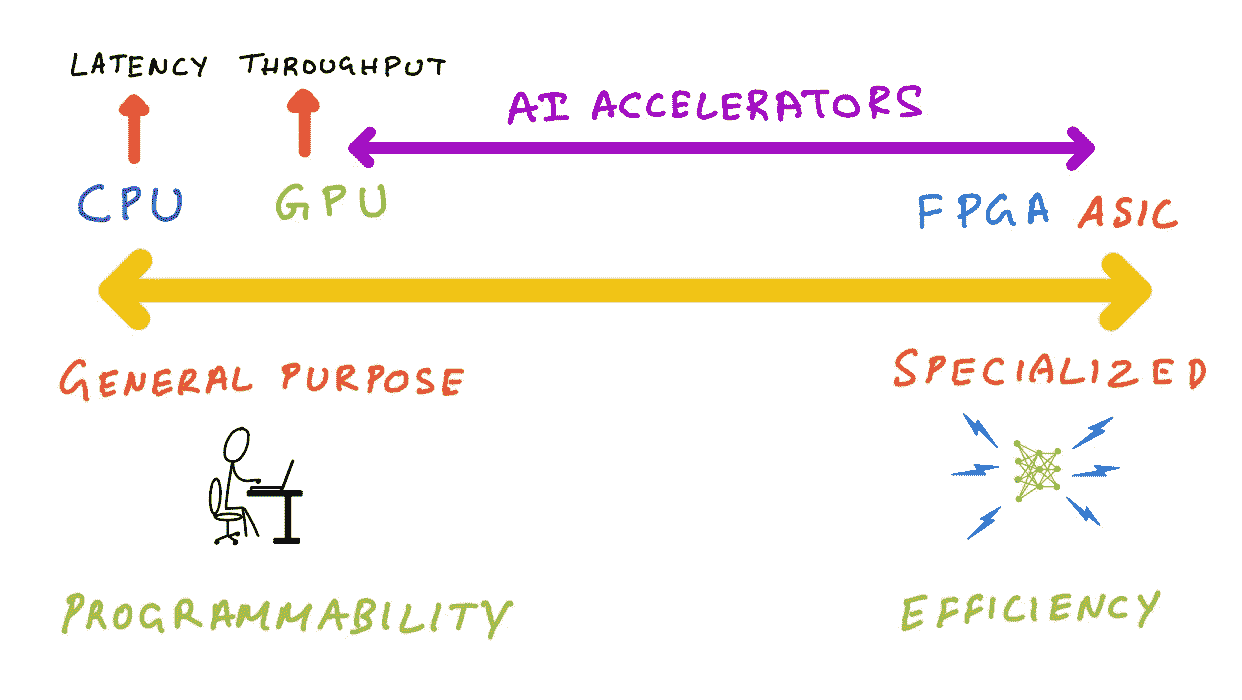 LATENCY THROUGHPUT
AI ACCELERATORS
CPU GPU
FPGA ASIC
GENERAL PURPOSE
SPECIALIZED
PROGRAMMABILITY
EFFICIENCY